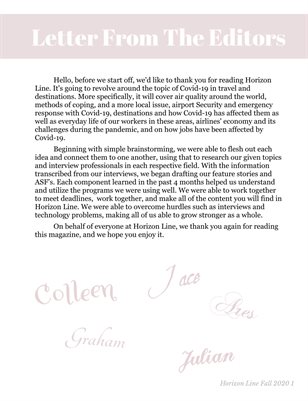 Letter From The Editors
Hello, before we start off, we'd like to thank you for reading Horizon
Line. It's going to revolve around the topic of Covid-19 in travel and
destinations. More specifically, it will cover air quality around the world,
methods of coping, and a more local issue, airport Security and emergency
response with Covid-19, destinations and how Covid-19 has affected them as
well as everyday life of our workers in these areas, airlines' economy and its
challenges during the pandemic, and on how jobs have been affected by
Covid-19.
Beginning with simple brainstorming, we were able to flesh out each
idea and connect them to one another, using that to research our given topics
and interview professionals in each respective field. With the information
transcribed from our interviews, we began drafting our feature stories and
ASF's. Each component learned in the past 4 months helped us understand
and utilize the programs we were using well. We were able to work together
to meet deadlines, work together, and make all of the content you will find in
Horizon Line. We were able to overcome hurdles such as interviews and
technology problems, making all of us able to grow stronger as a whole.
On behalf of everyone at Horizon Line, we thank you again for reading
this magazine, and we hope you enjoy it.
Colleen
Jaco
Ares
Graham
Julian
Horizon Line Fall 2020 1